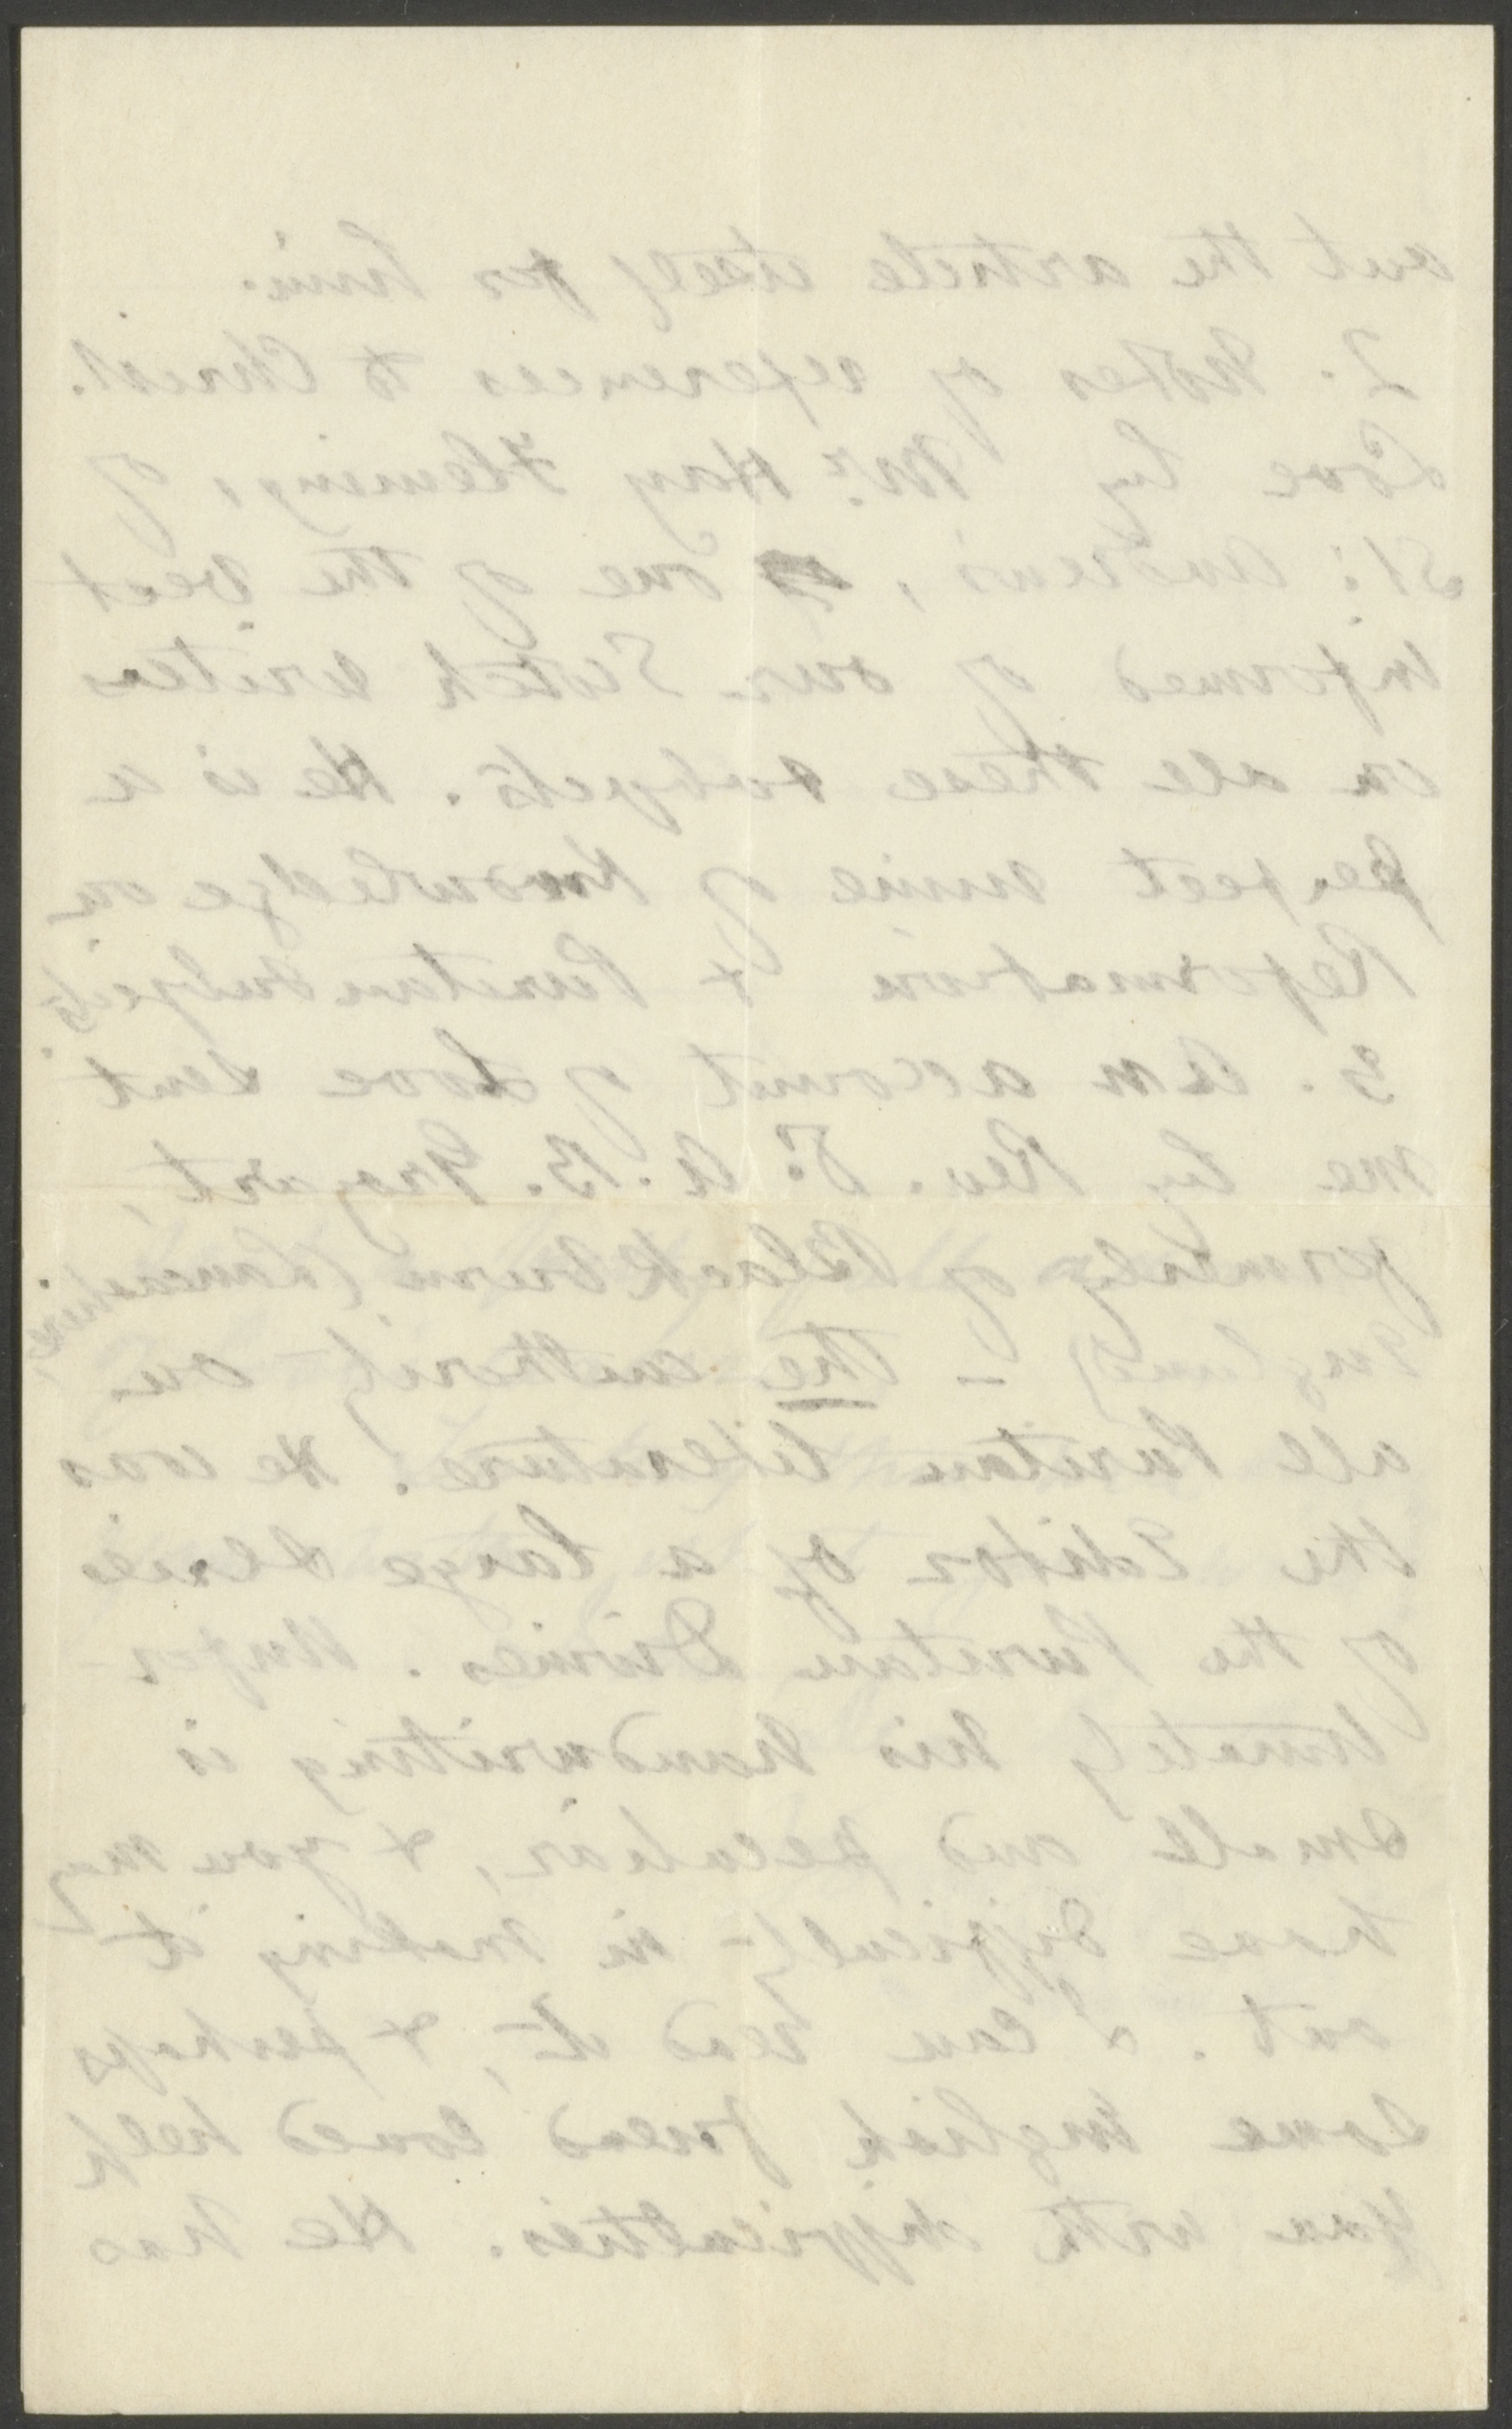 out the article itself for him.
2. Notes of references to Christ.
Love by Mr. Hay Fleming, of
St: Andrews, one of the best
informed of our Scotch writers
on all these subjects. He is a
perfect mine of knowledge on
Reformation & Puritan subjects.
3. An account of Love sent
me by Rev. Dr. A. B. Grosart,
formerly of Blackburn (Lancashire,
England) – the authority on
all Puritan literature! He was
the Editor of a large series
of the Puritan Divines. Unfor-
tunately his handwriting is
small and peculiar, & you may
have difficulty in making it
out. I can read it, & perhaps
some English friend could help
you with difficulties. He has